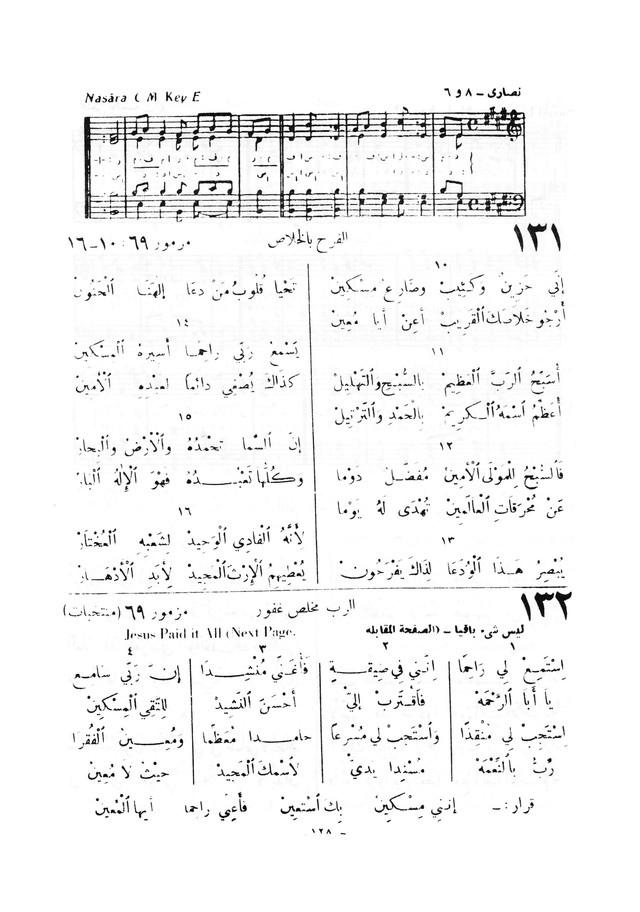 نصارى - ٨ و ٦
Nasāra C M Key E
١٣١
الفرح بالخلاص
مزمور ٦٩ : ١٠-١٦
١٠
إِنِّي حَزِينٌ وَكَئِيبْ وَضَارِعٌ مِسْكِينْ
أَرْجُو خَلَاصَكَ ٱلْقَرِيبْ أَعِنْ أَبَا مُعِينْ
١١
أُسَبِّحُ ٱلرَّبَّ ٱلْعَظِيمْ بِالسُّبْحِ وَٱلتَّهْلِيلْ
أُعَظِّمُ ٱسْمَهُ ٱلْكَرِيمْ بِالْحَمْدِ وَٱلتَّرْتِيلْ
١٢
فَالسُّبْحُ لِلْمَوْلَى ٱلْأَمِينْ مُفَضَّلٌ دَوْمَا
عَنْ مُحْرَقَاتِ ٱلْعَالَمِينْ تُهْدَى لَهُ يَوْمَا
١٣
يُبْصِرُ هَذَا ٱلْوُدَعَا لِذَاكَ يَفْرَحُونْ
تَحْيَا قُلُوبُ مَنْ دَعَا إِلَهَنَا ٱلْحَنُونْ
١٤
يَسْمَعُ رَبِّي رَاحِمًا أَسِيرَهُ ٱلْمِسْكِينْ
كَذَاكَ يُصْغِي دَائِمًا لِعَبْدِهِ ٱلْأَمِينْ
١٥
إِنَّ ٱلسَّمَا تَحْمَدُهُ وَٱلْأَرْضُ وَٱلْبِحَارْ
وَكُلُّهَا تَعْبُدُهُ فَهْوَ ٱلْإِلَهُ ٱلْبَارْ
١٦
لِأَنَّهُ ٱلْفَادِي ٱلْوَحِيدْ لِشَعْبِهِ ٱلْمُخْتَارْ
يُعْطِيهِمِ ٱلْإِرْثَ ٱلْمَجِيدْ لِأَبَدِ ٱلْأَدْهَارْ
١٣٢
الرب مخلص غفور
مزمور ٦٩ (منتخبات)
ليس شيء باقيا - (الصفحة المقابله
Jesus Paid it All (Next Page.
١
إِسْتَمِعْ لِي رَاحِمًا
يَا أَبَا ٱلرَّحْمَهْ
اِسْتَجِبْ لِي مُنْقِذًا
رَبُّ بِالنِّعْمَهْ
٢
إِنَّنِي فِي ضِيقَةٍ
فَاقْتَرِبْ إِلَيّْ
وَٱسْتَجِبْ لِي مُسْرِعًا
مُسْنِدًا يَدَيّْ
٣
فَأُغَنِّي مُنْشِدًا
أَحْسَنَ ٱلنَّشِيدْ
حَامِدًا مُعَظِّمًا
لِاسْمِكَ ٱلْمَجِيدْ
٤
إِنَّ رَبِّي سَامِعٌ
لِلتَّقِي ٱلْمِسْكِينْ
وَمُعِينُ ٱلْفُقَرَا
حَيْثُ لَا مُعِينْ
قرار :- إِنَّنِي مِسْكِينْ بِكَ أَسْتَعِينْ فَأَعِنِّي رَاحِمًا أَيُّهَا ٱلْمُعِينْ
- ١٢٨